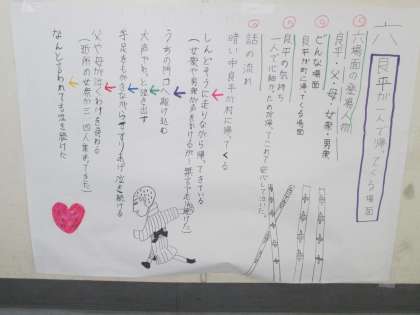 六
良平が一人で帰ってくる場面
六場面の登場人物
良平・父・母・女衆・男衆
どんな場面
良平が町に帰ってくる場面
良平の気持ち
一人で心細かったため帰ってこれて安心して泣いた。
話の流れ
暗い中良平が村に帰ってくる
しんどそうに走りながら帰ってきている
(女衆や男衆が声をかけるが無言で走り続けた)
うちの門口へ駆け込む
大声でわっと泣き出す
手足をもがきながらすすりあげ泣き続ける
父や母が泣くわけを尋ねる
(近所の女衆が三、四人集まってきた)
なんと言われても泣き続けた